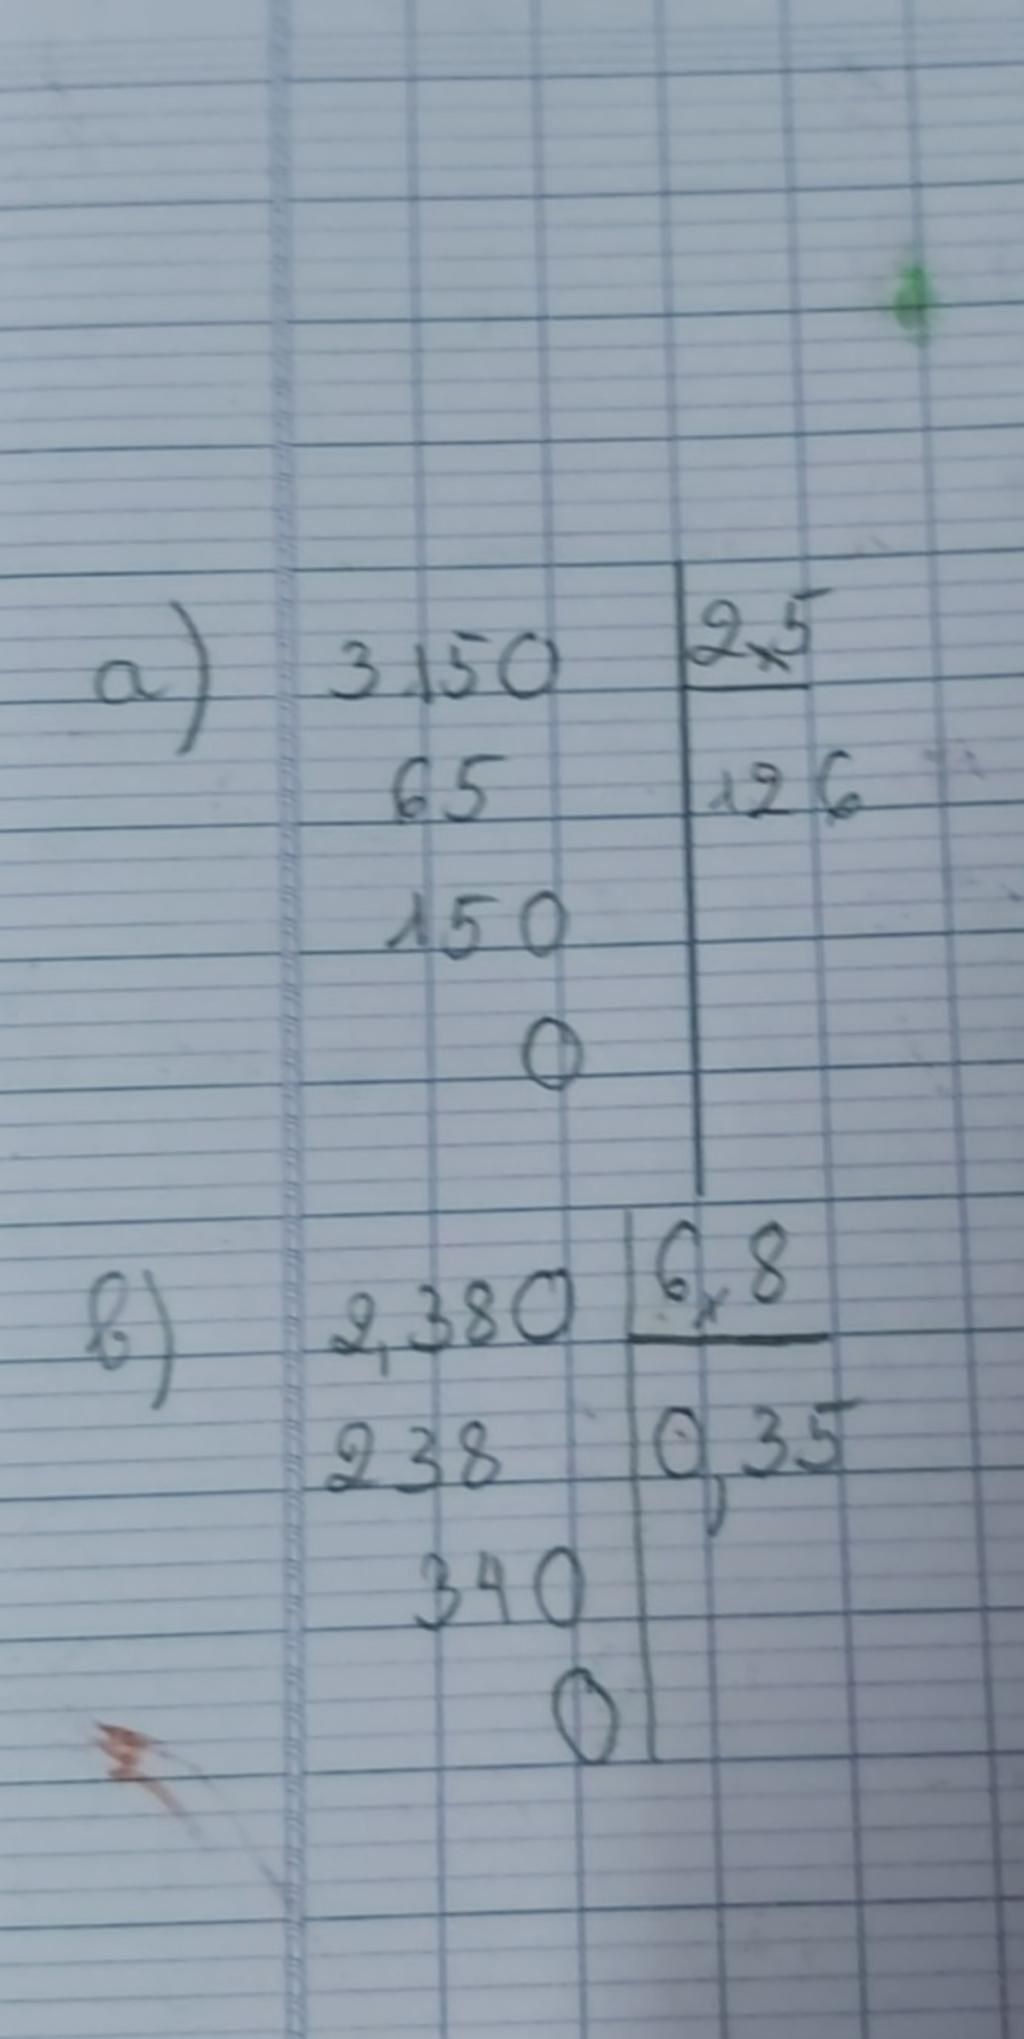 a) 3150 2,5
65 126
150
0
b) 2,380 6,8
238 0,35
340
0